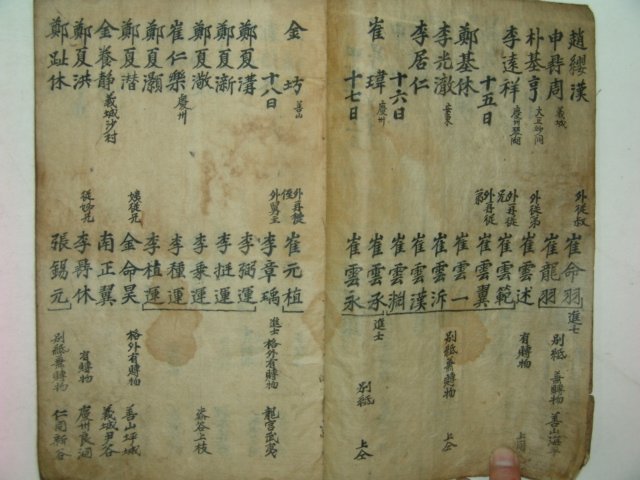 趙纓漢
申㝷周 義城
朴基亨
李達祥 慶州
十五日
鄭基休
李光澈 安東
李居仁
十六日
崔瑋 慶州
十七日
外從叔 崔命羽 進士
崔龍羽 別紙 善賻物 善山
外從弟 崔雲述 有賻物
外再從兄 崔雲範
外再從弟 崔雲翼
崔雲一
崔雲沂 別紙兼賻物 上仝
崔雲漢
崔雲淵
崔雲承 進士
崔雲永 別紙 上仝
金坊 善山
十八日
鄭夏溝
鄭夏漸
鄭夏澈
崔仁樂 慶州
鄭夏灝
鄭夏潛
金養靜 義城沙村
鄭夏洪
鄭趾休
外再從侄 崔元植
李章瑀 進士 格外有賻物 龍宮武夷
李弼運
李挺運
李秉運 上枝
李種運
李植運
金命昊 格外有賻物 善山坪城
南正翼 義城尹谷
李㝷休 有賻物 慶州良洞
張錫元 別紙兼賻物 仁同新谷